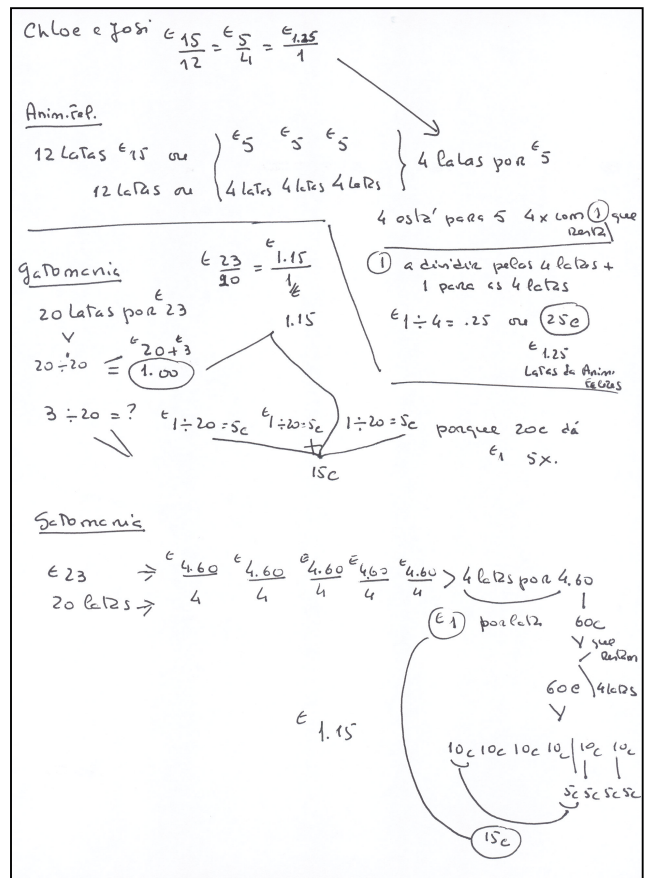 Chloe e Josi €15/12 = €5/4 = €1.25/1
Anim. Fel.
12 Latas €15 ou €5 €5 €5
12 Latas ou 4 latas 4 latas 4 latas
4 latas por €5
4 está para 5 4x com ① que
resta
① a dividir pelas 4 latas +
1 para as 4 latas
€1 ÷ 4 = .25 ou 25c
€1.25
Latas da Anim.
Felizes
Gatomania
€23/20 = €1.15/1
20 Latas por €23
1.15
€20+€3
20÷20 = 1.00
3 ÷ 20 = ? €1÷20=5c €1÷20=5c + 1÷20=5c porque 20c dá
€1 5x.
15c
Gatomania
€23 ⇒ €4.60 €4.60 €4.60 €4.60 €4.60
20 latas ⇒ 4 4 4 4 4
> 4 latas por 4.60
€1 por lata 60c
que
restam
60c 4 latas
€1.15
10c 10c 10c 10c 10c 10c
5c 5c 5c 5c
15c